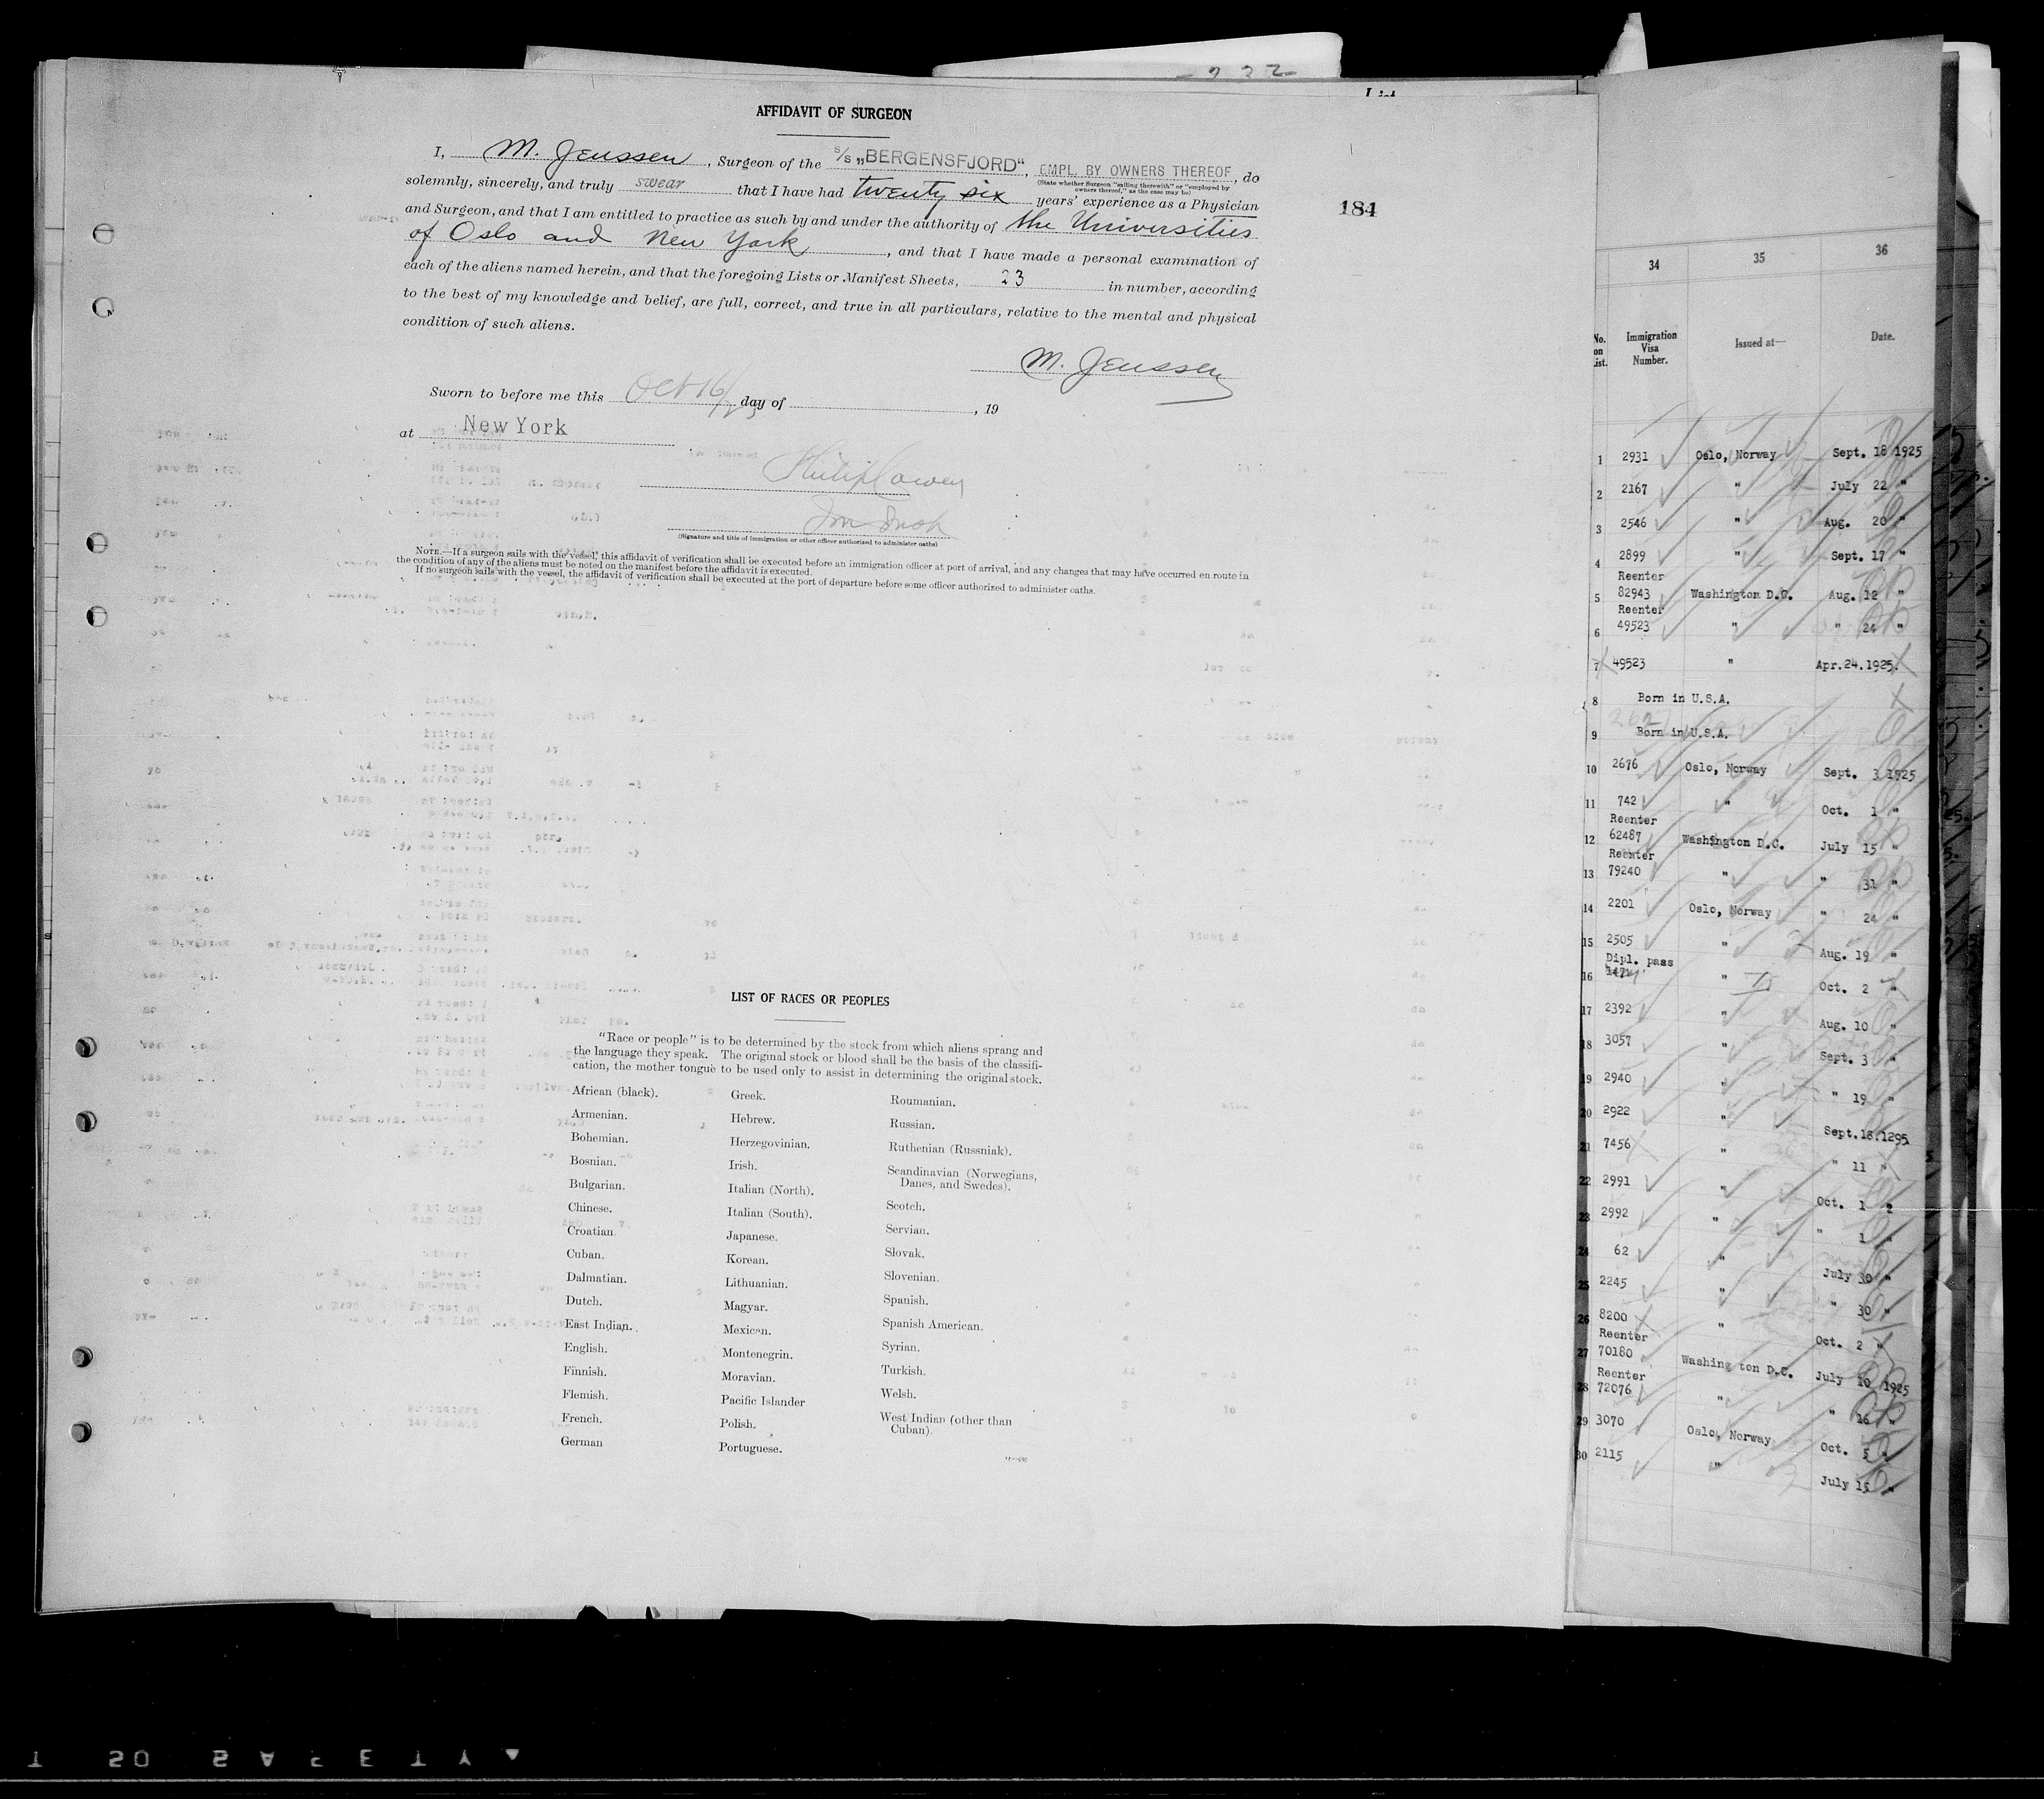 AFFIDAVIT OF SURGEON
I, M. Jenssen, Surgeon of the S/S „BERGENSFJORD“, EMPL. BY OWNERS THEREOF, do
(State whether Surgeon "sailing therewith" or "employed by
owners thereof," as the case may be)
solemnly, sincerely, and truly swear that I have had twenty six years' experience as a Physician
and Surgeon, and that I am entitled to practice as such by and under the authority of the Universities
of Oslo and New York, and that I have made a personal examination of
each of the aliens named herein, and that the foregoing Lists or Manifest Sheets, 23 in number, according
to the best of my knowledge and belief, are full, correct, and true in all particulars, relative to the mental and physical
condition of such aliens.
M. Jenssen
Sworn to before me this Oct 16/25 day of , 19
at New York
(Signature and title of immigration or other officer authorized to administer oaths)
NOTE.—If a surgeon sails with the vessel, this affidavit of verification shall be executed before an immigration officer at port of arrival, and any changes that may have occurred en route in
the condition of any of the aliens must be noted on the manifest before the affidavit is executed.
If no surgeon sails with the vessel, the affidavit of verification shall be executed at the port of departure before some officer authorized to administer oaths.
184
LIST OF RACES OR PEOPLES
"Race or people" is to be determined by the stock from which aliens sprang and
the language they speak. The original stock or blood shall be the basis of the classifi-
cation, the mother tongue to be used only to assist in determining the original stock.
African (black).
Armenian.
Bohemian.
Bosnian.
Bulgarian.
Chinese.
Croatian.
Cuban.
Dalmatian.
Dutch.
East Indian.
English.
Finnish.
Flemish.
French.
German
Greek.
Hebrew.
Herzegovinian.
Irish.
Italian (North).
Italian (South).
Japanese.
Korean.
Lithuanian.
Magyar.
Mexican.
Montenegrin.
Moravian.
Pacific Islander
Polish.
Portuguese.
Roumanian.
Russian.
Ruthenian (Russniak).
Scandinavian (Norwegians,
Danes, and Swedes).
Scotch.
Servian.
Slovak.
Slovenian.
Spanish.
Spanish American.
Syrian.
Turkish.
Welsh.
West Indian (other than
Cuban).
34 35 36
No. on List. Immigration Visa Number. Issued at— Date.
1 2931 Oslo, Norway Sept. 18 1925
2 2167 " July 22 "
3 2546 " Aug. 20 "
4 2899 " Sept. 17 "
Reenter
5 82943 Washington D.C. Aug. 12 "
Reenter
6 49523 " " 24 "
7 49523 " Apr.24.1925.
8 Born in U.S.A.
9 Born in U.S.A.
10 2676 Oslo, Norway Sept. 3 1925
11 742 " Oct. 1 "
Reenter
12 62487 Washington D.C. July 15 "
Reenter
13 79240 " " 31 "
14 2201 Oslo, Norway " 24 "
15 2505 " Aug. 19 "
Dipl. pass
16 " Oct. 2 "
17 2392 " Aug. 10 "
18 3057 " Sept. 3 "
19 2940 " " 19 "
20 2922 " Sept.18.1295
21 7456 " " 11 "
22 2991 " Oct. 1 2
23 2992 " " 1 "
24 62 " July 30 "
25 2245 " " 30 "
26 8200 " Oct. 2 "
Reenter
27 70180 Washing ton D.C. July 10 1925
Reenter
28 72076 " " 16 "
29 3070 Oslo, Norway Oct. 5 "
30 2115 " July 15 "
SAFETY